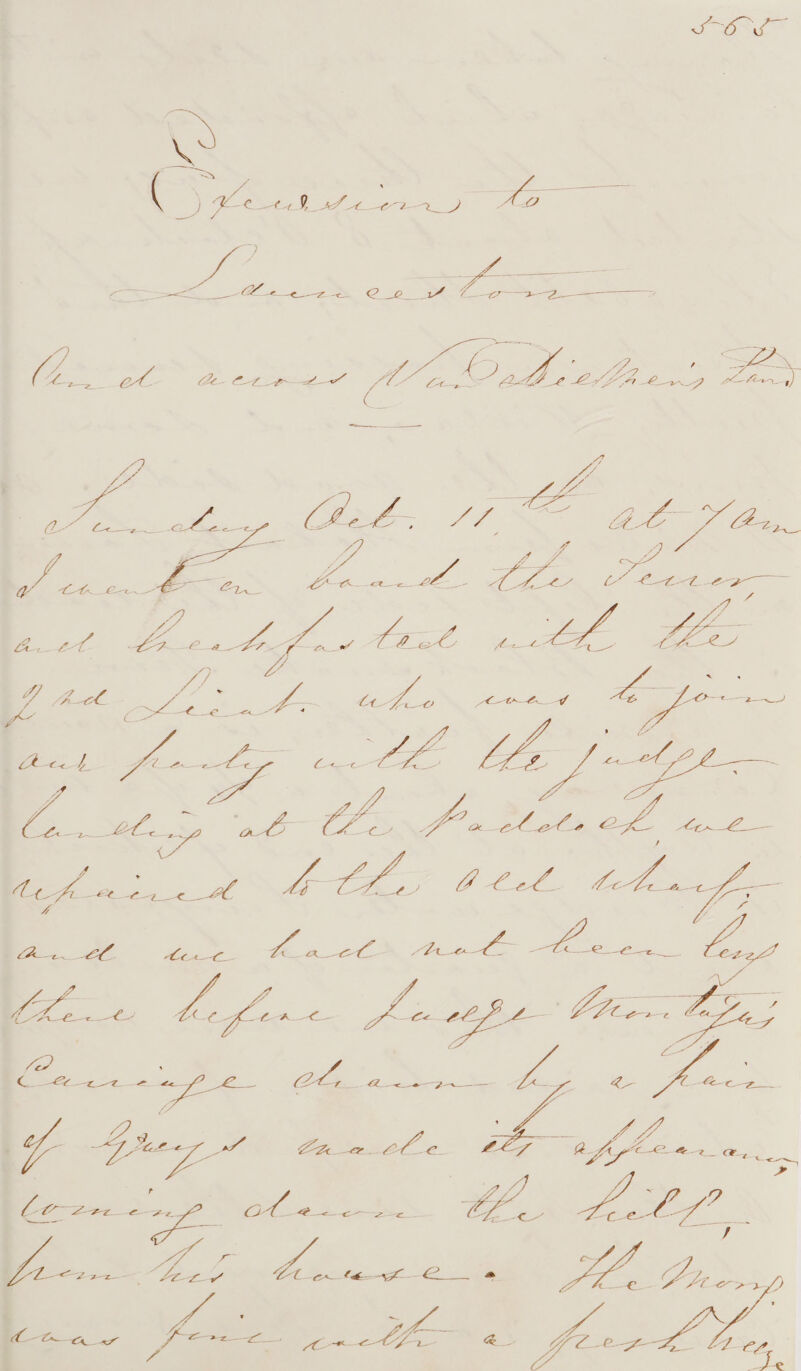 565
Excursion to
Launceston
And across Van Diemen's Land
Sunday Oct. 11th at 7 Am
I went on board the Terror,
and breakfasted with the
2nd Lieut. who was to join
our party with the judge.
landing at the Paddock we
repaired to the Old Wharf,
and we had not been long
there before Judge Montagu's
Carriage drawn by a pair
of Greys made its appearance,
coming down the hill,
from his house. The Morng
was fine with a fresh breeze